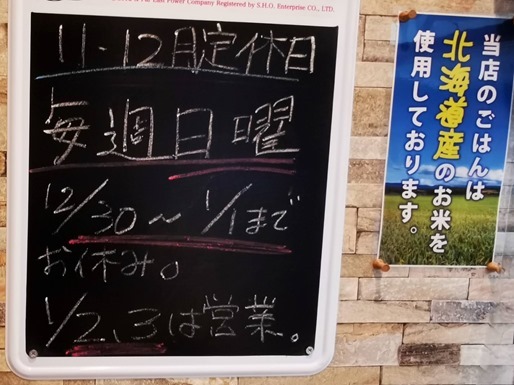 Far East Power Company Registered by S.H.O. Enterprise CO., LTD.
11・12月定休日
毎週日曜
12/30〜1/1まで
お休み。
1/2、3は営業。
当店のごはんは
北海道産のお米を
使用しております。